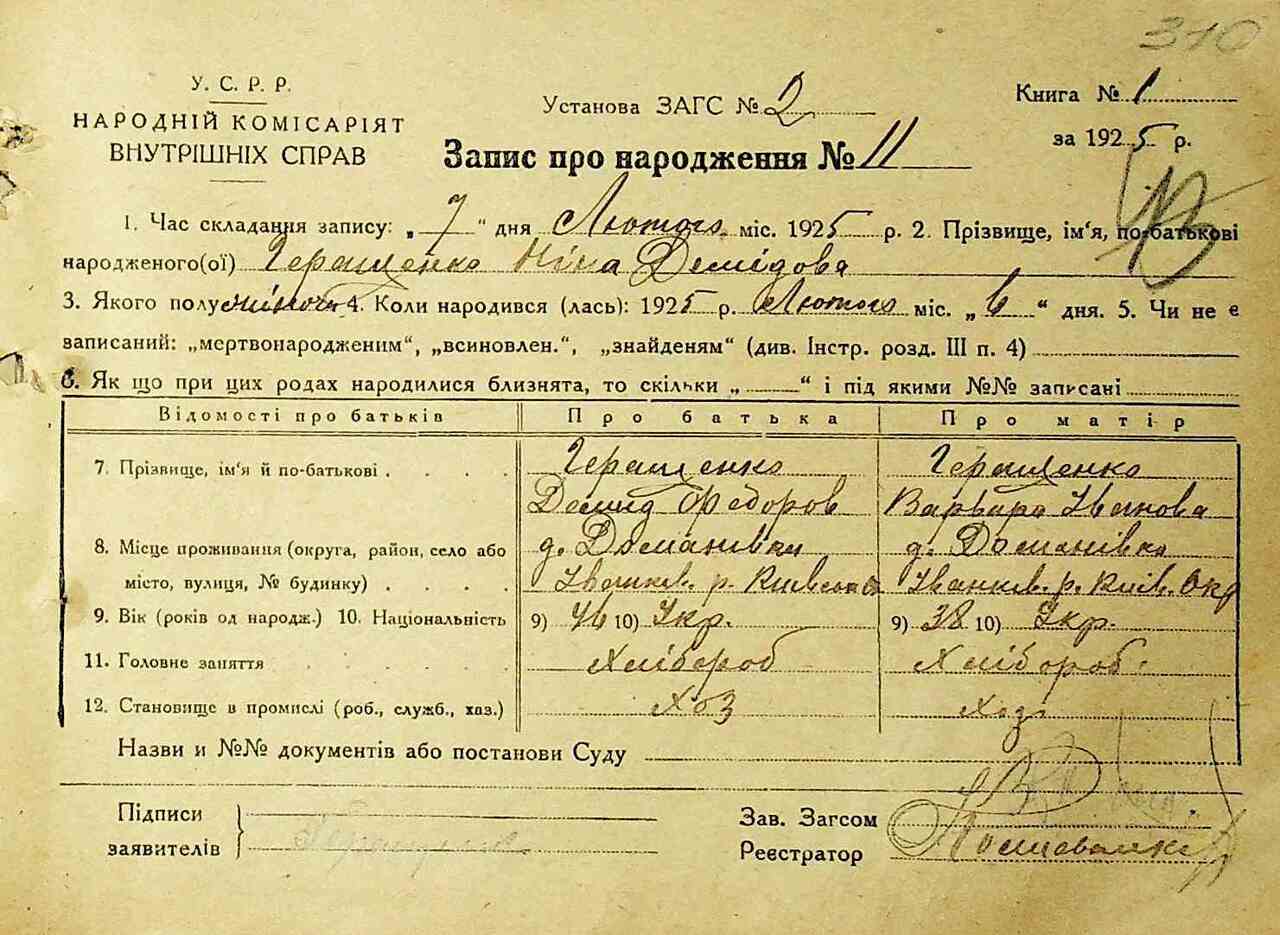 310
У. С. Р. Р.
НАРОДНІЙ КОМІСАРІЯТ
ВНУТРІШНІХ СПРАВ
Установа ЗАГС № 2
Книга № 1
за 1925 р.
Запис про народження № 11
1. Час складання запису: „ 7 “ дня Лютого міс. 1925 р. 2. Прізвище, ім'я, по-батькові
народженого(ої) Геращенко Ніна Демідова
3. Якого полу жіночої 4. Коли народився (лась): 1925 р. Лютого міс. „ 6 “ дня. 5. Чи не є
записаний: „мертвонародженим“, „всиновлен.“, „знайденям“ (див. Інстр. розд. III п. 4)
6. Як що при цих родах народилися близнята, то скільки „ “ і під якими №№ записані
Відомості про батьків Про батька Про матір
7. Прізвище, ім'я й по-батькові Геращенко Геращенко
Демид Федоров Варвара Іванова
8. Місце проживання (округа, район, село або д. Доманівки д. Доманівка
місто, вулиця, № будинку) Іванків. р. Іванків. р. Київ. Окр
9. Вік (років од народж.) 10. Національність 9) 46 10) Укр. 9) 38 10) Укр.
11. Головне заняття Хлібороб Хлібороб
12. Становище в промислі (роб., служб., хаз.) Хоз Хоз
Назви и №№ документів або постанови Суду
Підписи
заявителів
Зав. Загсом
Реєстратор